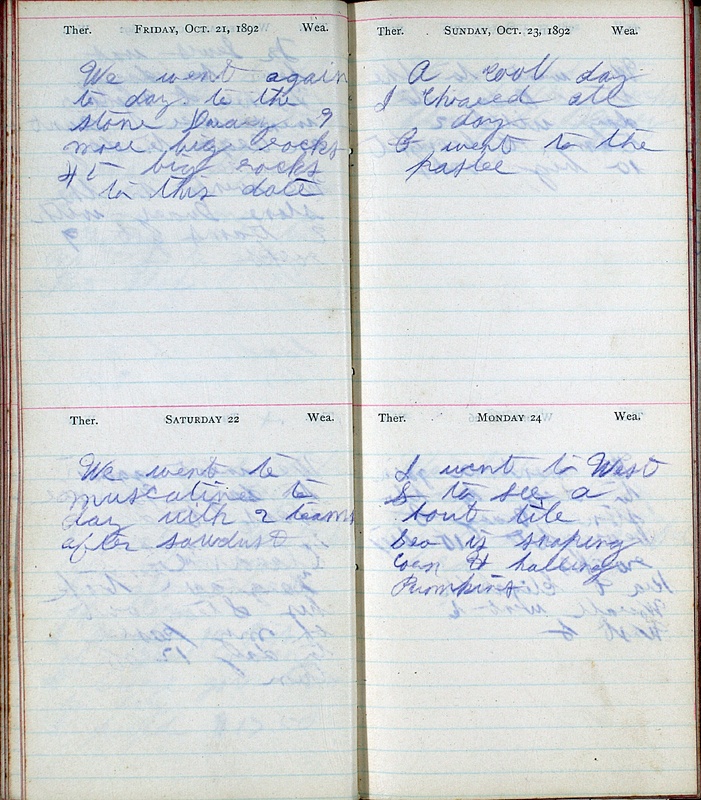 Ther. FRIDAY, OCT. 21, 1892 Wea.
We went again
to day to the
stone Quary 9
more big rocks
45 big rocks
to this date
Ther. SATURDAY 22 Wea.
We went to
muscatine to
day with 2 teams
after sawdust
Ther. SUNDAY, OCT. 23, 1892 Wea.
A cool day
I choared all
day
went to the
Ther. MONDAY 24 Wea.
I went to West
to see a
bout tile
is snaping
corn & halling
Pumpkins